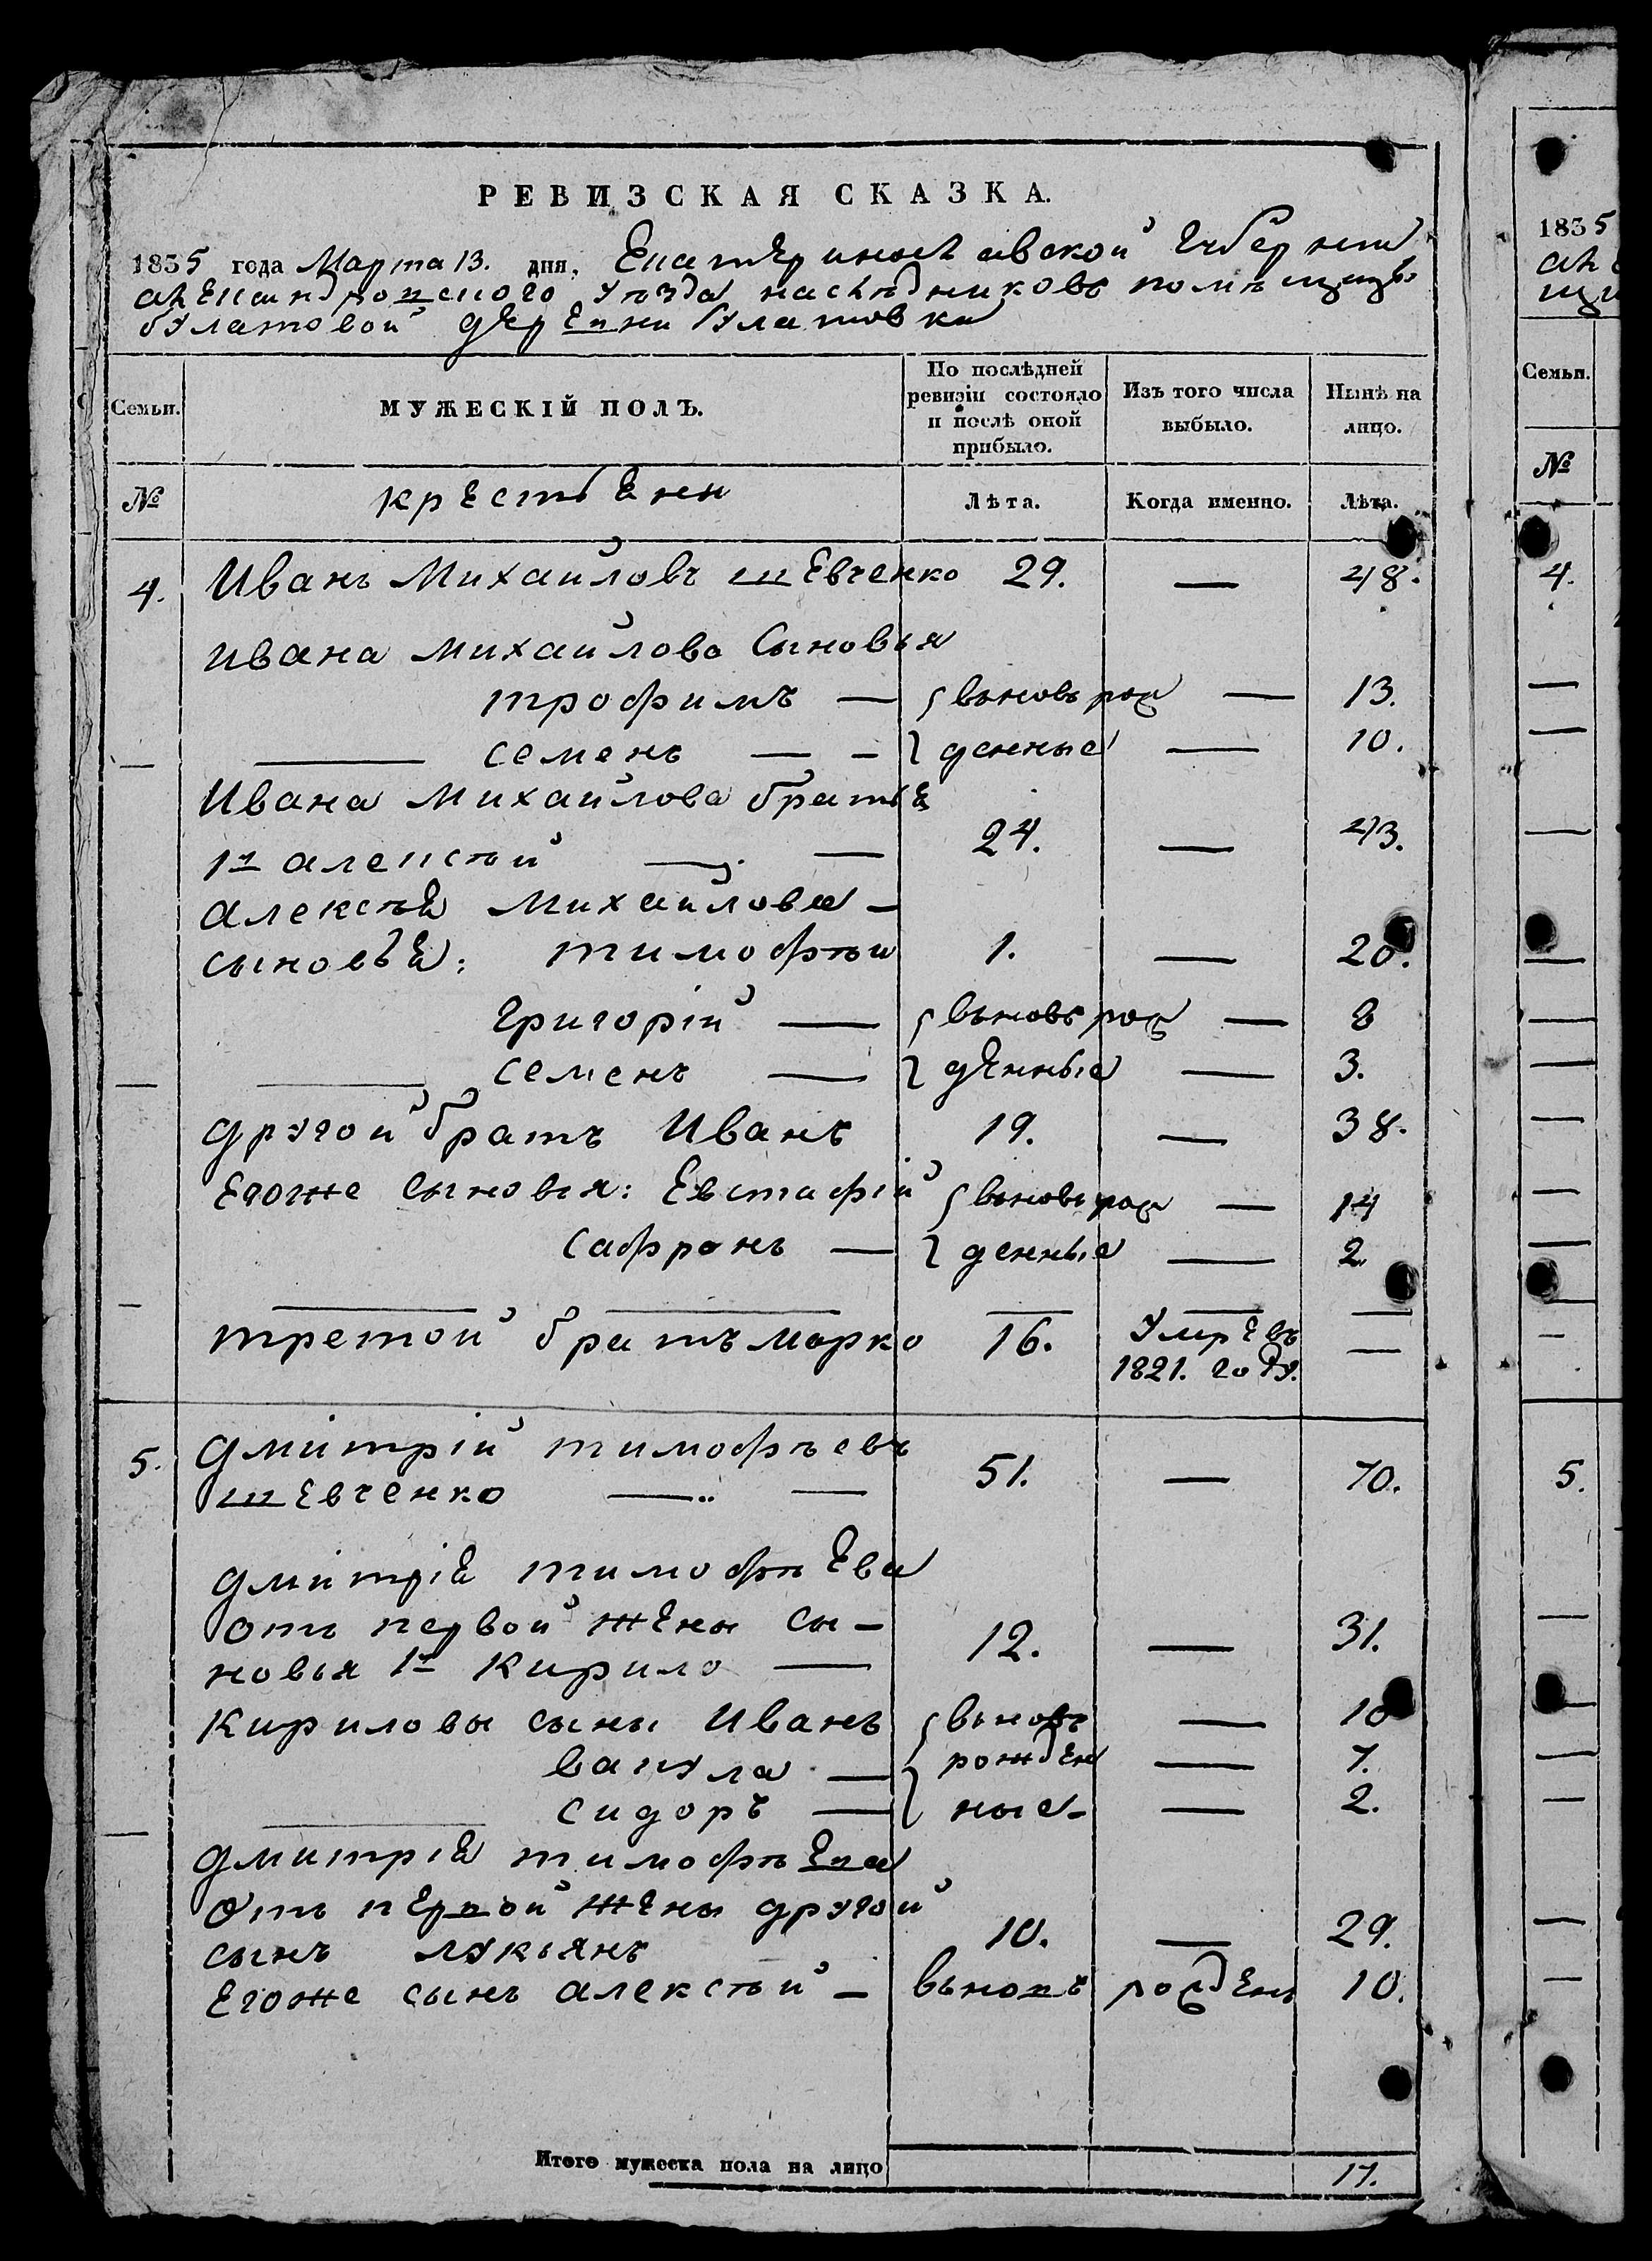 РЕВИЗСКАЯ СКАЗКА.
1835 года Марта 13. дня, Екатеринославской Губернии
Александровского уѣзда наслѣдниковъ помѣщицы
булатовой деревни булатовки
Семьи.
МУЖЕСКІЙ ПОЛЪ.
По послѣдней ревизіи состояло и послѣ оной прибыло.
Изъ того числа выбыло.
Нынѣ на лицо.
№
крестьяне
Лѣта.
Когда именно.
Лѣта.
4. Иванъ Михайловъ шевченко 29. — 48.
ивана михайлова Сыновья
трофимъ — вьновь рож — 13.
семенъ — — денные — 10.
Ивана Михайлова братья
1й алексѣй — — 24. — 43.
алексѣя Михайлова —
сыновья: тимофѣй 1. — 20.
григорій — вьновь рож — 8
семенъ — денные — 3.
другой братъ Иванъ 19. — 38.
Егоже сыновья: Евстафій вьновь рож — 14
сафронъ — денные — 2.
третой братъ марко 16. Умре въ —
1821. году.
5. дмитрій тимофѣевъ
шевченко — — 51. — 70.
дмитрія тимофѣева
отъ первой жены сы—
новья 1й Кирило — 12. — 31.
Кириловы сыны Иванъ вьновь — 10
вакула — рожден — 7.
сидоръ — ные — 2.
дмитрія тимофѣева
отъ первой жены другой
сынъ лукьянъ 10. — 29.
Егоже сынъ алексѣй — вьновь рожденъ 10.
Итого мужеска пола на лицо 17.
1835
Семьи.
№
4.
5.